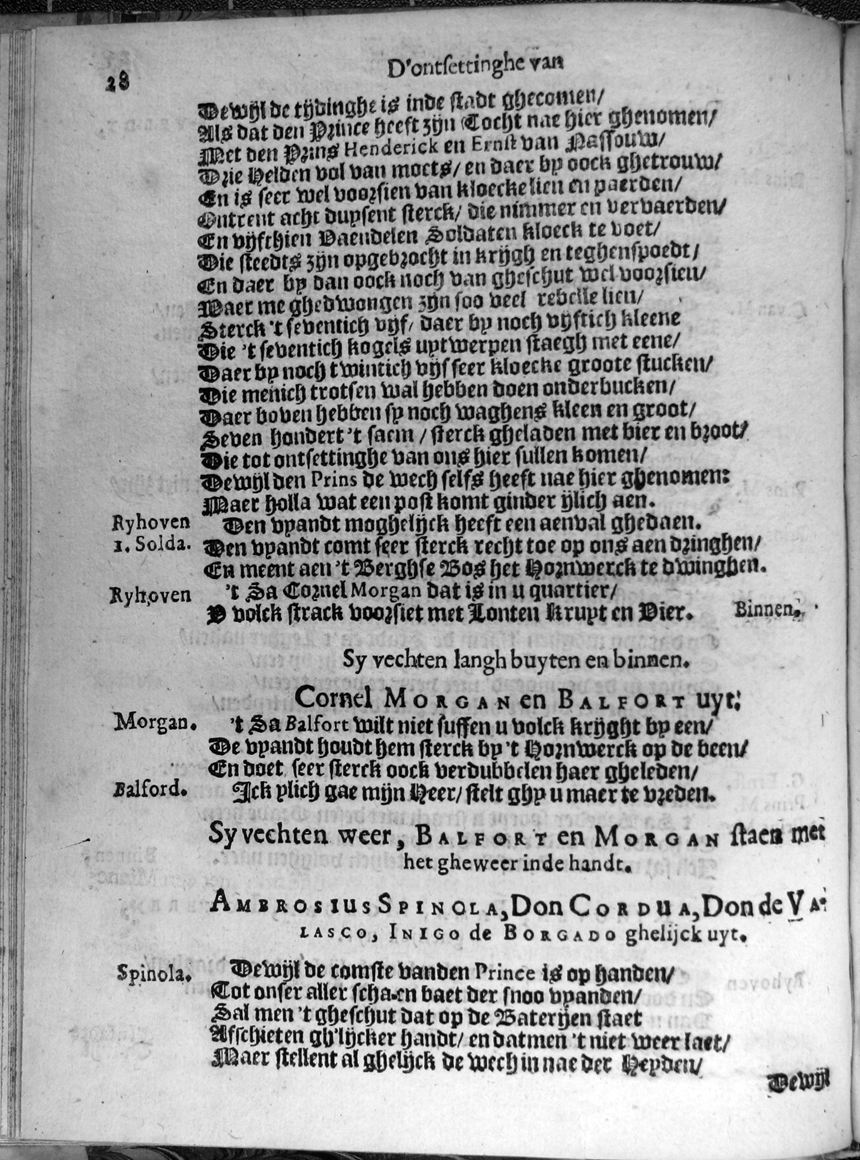 28
D'ontsettinghe van
Dewijl de tijdinghe is inde stadt ghecomen/
Als dat den Prince heeft zijn Tocht nae hier ghenomen/
Met den Prins Henderick en Ernst van Nassouw/
Drie Helden vol van moets/ en daer by oock ghetrouw/
En is seer wel voorsien van kloecke lien en paerden/
Ontrent acht duysent sterck/ die nimmer en vervaerden/
En vijfthien Vaendelen Soldaten kloeck te voet/
Die steedts zijn opgebrocht in krijgh en teghenspoedt/
En daer by dan oock noch van gheschut wel voorsien/
Waer me ghedwongen zijn soo veel rebelle lien/
Sterck 't seventich vijf/ daer by noch vijftich kleene
Die 't seventich kogels uytwerpen staegh met eene/
Daer by noch twintich vijf seer kloecke groote stucken/
Die menich trotsen wal hebben doen onderbucken/
Daer boven hebben sy noch waghens kleen en groot/
Seven hondert 't saem / sterck gheladen met bier en broot/
Die tot ontsettinghe van ons hier sullen komen/
Dewijl den Prins de wech selfs heeft nae hier ghenomen:
Maer holla wat een post komt ginder ijlich aen.
Ryhoven Den vyandt moghelijck heeft een aenval ghedaen.
1. Solda. Den vyandt comt seer sterck recht toe op ons aen dringhen/
En meent aen 't Berghse Bos het Hornwerck te dwinghen.
Ryhoven 't Sa Cornel Morgan dat is in u quartier/
V volck strack voorsiet met Lonten Kruyt en Vier. Binnen.
Sy vechten langh buyten en binnen.
Cornel MORGAN en BALFORT uyt:
Morgan. 't Sa Balfort wilt niet suffen u volck krijght by een/
De vyandt houdt hem sterck by 't Hornwerck op de been/
En doet seer sterck oock verdubbelen haer gheleden/
Balford. Ick ylich gae mijn Heer/ stelt ghy u maer te vreden.
Sy vechten weer, BALFORT en MORGAN staen met
het gheweer inde handt.
AMBROSIUS SPINOLA, Don CORDUA, Don de VA-
LASCO, INIGO de BORGADO ghelijck uyt.
Spinola. Dewijl de comste vanden Prince is op handen/
Tot onser aller schaen baet der snoo vyanden/
Sal men 't gheschut dat op de Baterijen staet
Afschieten gh'lijcker handt/ en datmen 't niet weer laet/
Maer stellent al ghelijck de wech in nae der Heyden/
Dewijl